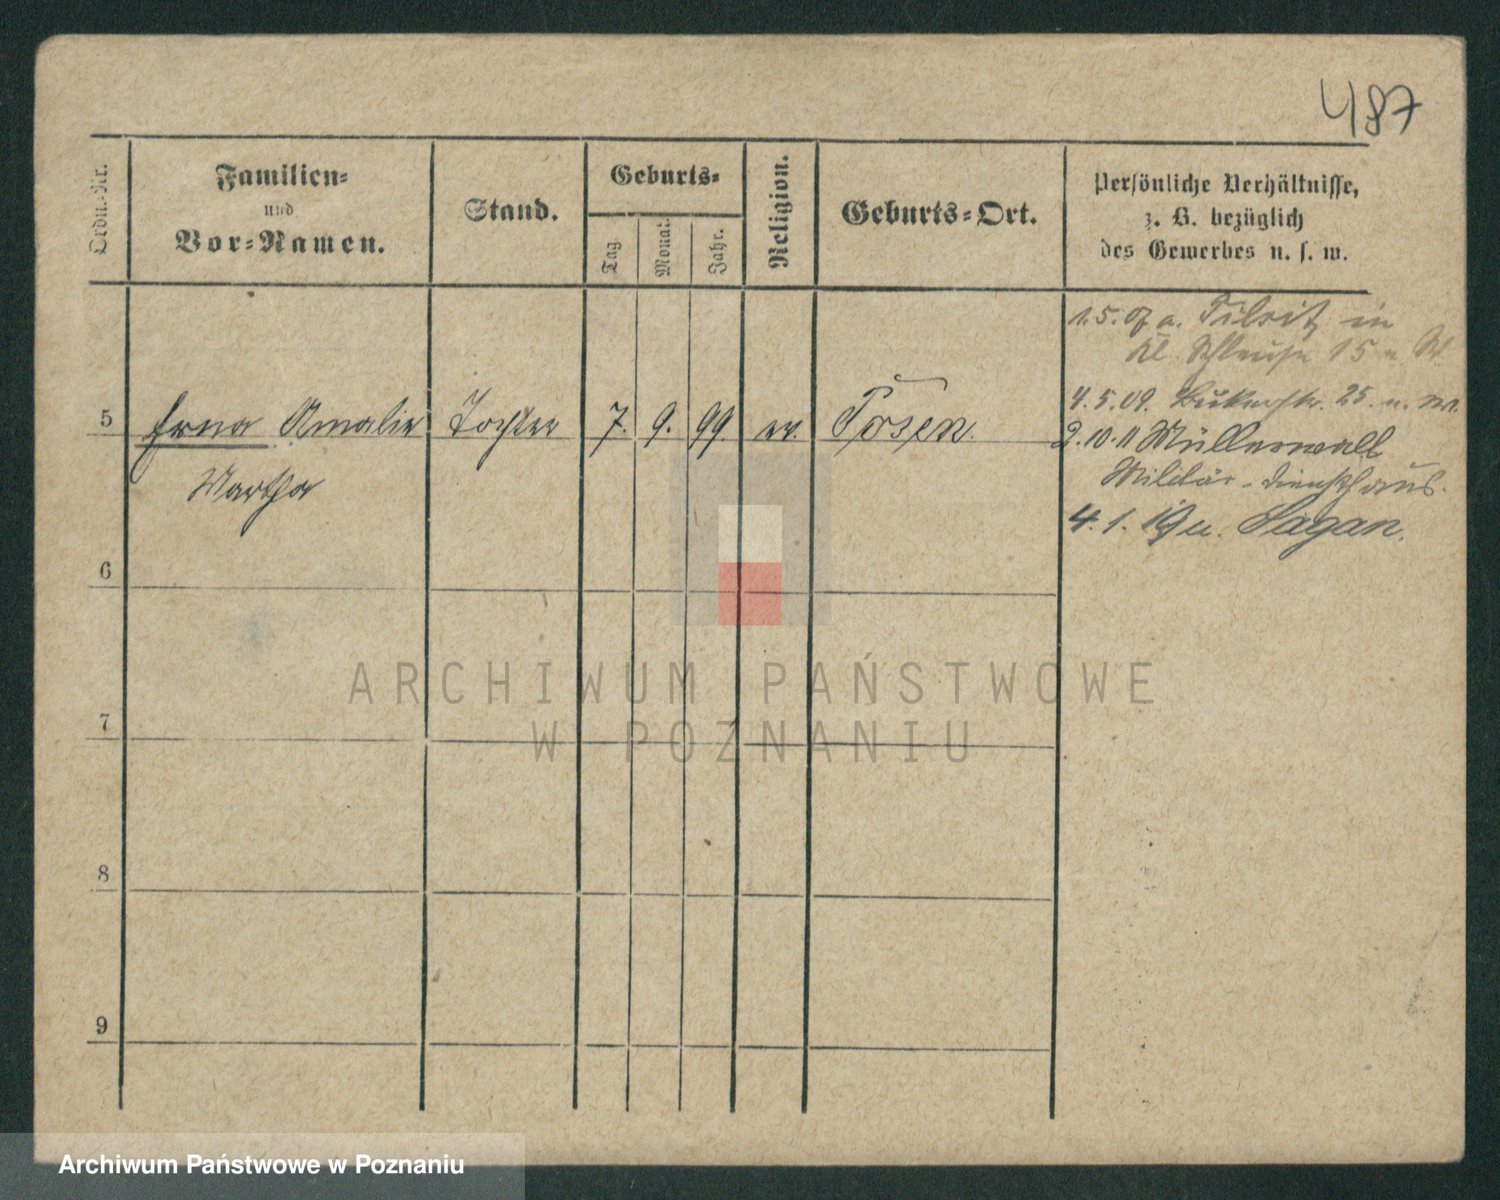 487
Ordn.-Nr.
Familien-
und
Vor-Namen.
Stand.
Geburts-
Tag.
Monat.
Jahr.
Religion.
Geburts-Ort.
Persönliche Verhältnisse,
z. B. bezüglich
des Gewerbes u. s. w.
1.5.07 a. Tilsit in
Kl. Schleuse 15
4.5.09. Bukerstr. 25. u. W.
5 Erna Amalie Tochter 7. 9. 99. ev. Posen.
Martha
2.10.11 Müllerwall
Militär-diensthaus.
4.1.19 n. Sagan.
6
7
8
9
ARCHIWUM PAŃSTWOWE
W POZNANIU
Archiwum Państwowe w Poznaniu